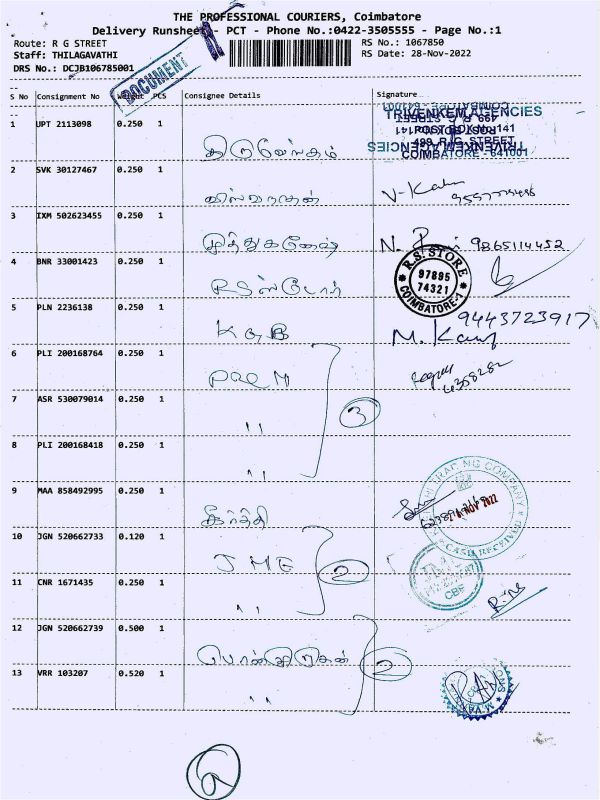 THE PROFESSIONAL COURIERS, Coimbatore
Delivery Runsheet - PCT - Phone No.:0422-3505555 - Page No.:1
Route: R G STREET RS No.: 1067850
Staff: THILAGAVATHI RS Date: 28-Nov-2022
DRS No.: DCJB106785001
DOCUMENT
S No Consignment No Weight PCS Consignee Details Signature
TRIVENKEM AGENCIES
499, R.G. STREET
COIMBATORE - 641001
1 UPT 2113098 0.250 1
2 SVK 30127467 0.250 1 விஸ்வநாதன்
3 IXM 502623455 0.250 1 முத்துகணேஷ் 9865114452
4 BNR 33001423 0.250 1 RS ஸ்டோர்
R.S. STORE
97895
74321
COIMBATORE-1
5 PLN 2236138 0.250 1 9443723917
6 PLI 200168764 0.250 1
7 ASR 530079014 0.250 1 "
3
8 PLI 200168418 0.250 1 "
9 MAA 858492995 0.250 1 கீர்த்தி
TRADING COMPANY
NOV 2022
CASH RECEIVED
10 JGN 520662733 0.120 1 JME
2
CBE
11 CNR 1671435 0.250 1 "
12 JGN 520662739 0.500 1 பொன்முருகன்
2
13 VRR 103207 0.520 1 "